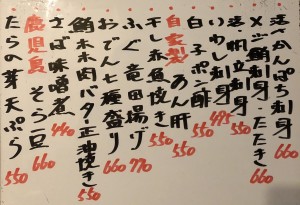 活〆かんぱち刺身 660
メジ鮪刺身・たたき 660
活・帆立刺身 550
いわし刺身 495
白子ポン酢 550
自家製 あん肝 550
干し赤魚焼き 550
ふぐ竜田揚げ 770
おでん七種盛り 660
鮪ホホ肉バター正油焼き 550
さば味噌煮 440
鹿児島 そら豆 660
たらの芽天ぷら 550